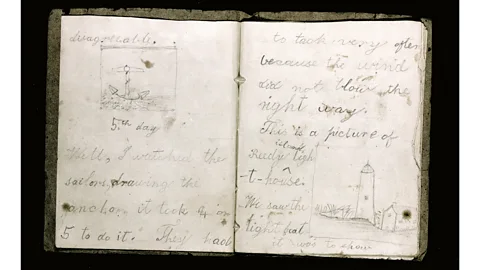 disagreeable.
5th day
Well, I watched the
sailors drawing the
anchor it took 4 or
5 to do it. They had
to tack very often
because the wind
did not blow the
right way.
This is a picture of
Reedy island ligh
-t-house.
We saw the
light but
it was to show